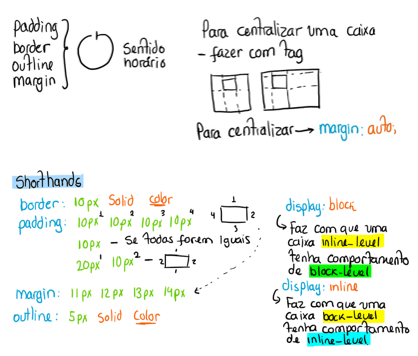 padding
border
outline
margin
sentido
horário
Para centralizar uma caixa
- fazer com tag
Para centralizar → margin: auto;
Shorthands
border: 10px Solid color
padding: 10px¹ 10px² 10px³ 10px⁴
1
4 2
3
10px - Se todas forem Iguais
20px¹ 10px² -
1
2 2
1
margin: 11px 12px 13px 14px
outline: 5px Solid Color
display: block
Faz com que uma
caixa inline-level
tenha comportamento
de block-level
display: inline
Faz com que uma
caixa bock-level
tenha comportamento
de inline-level